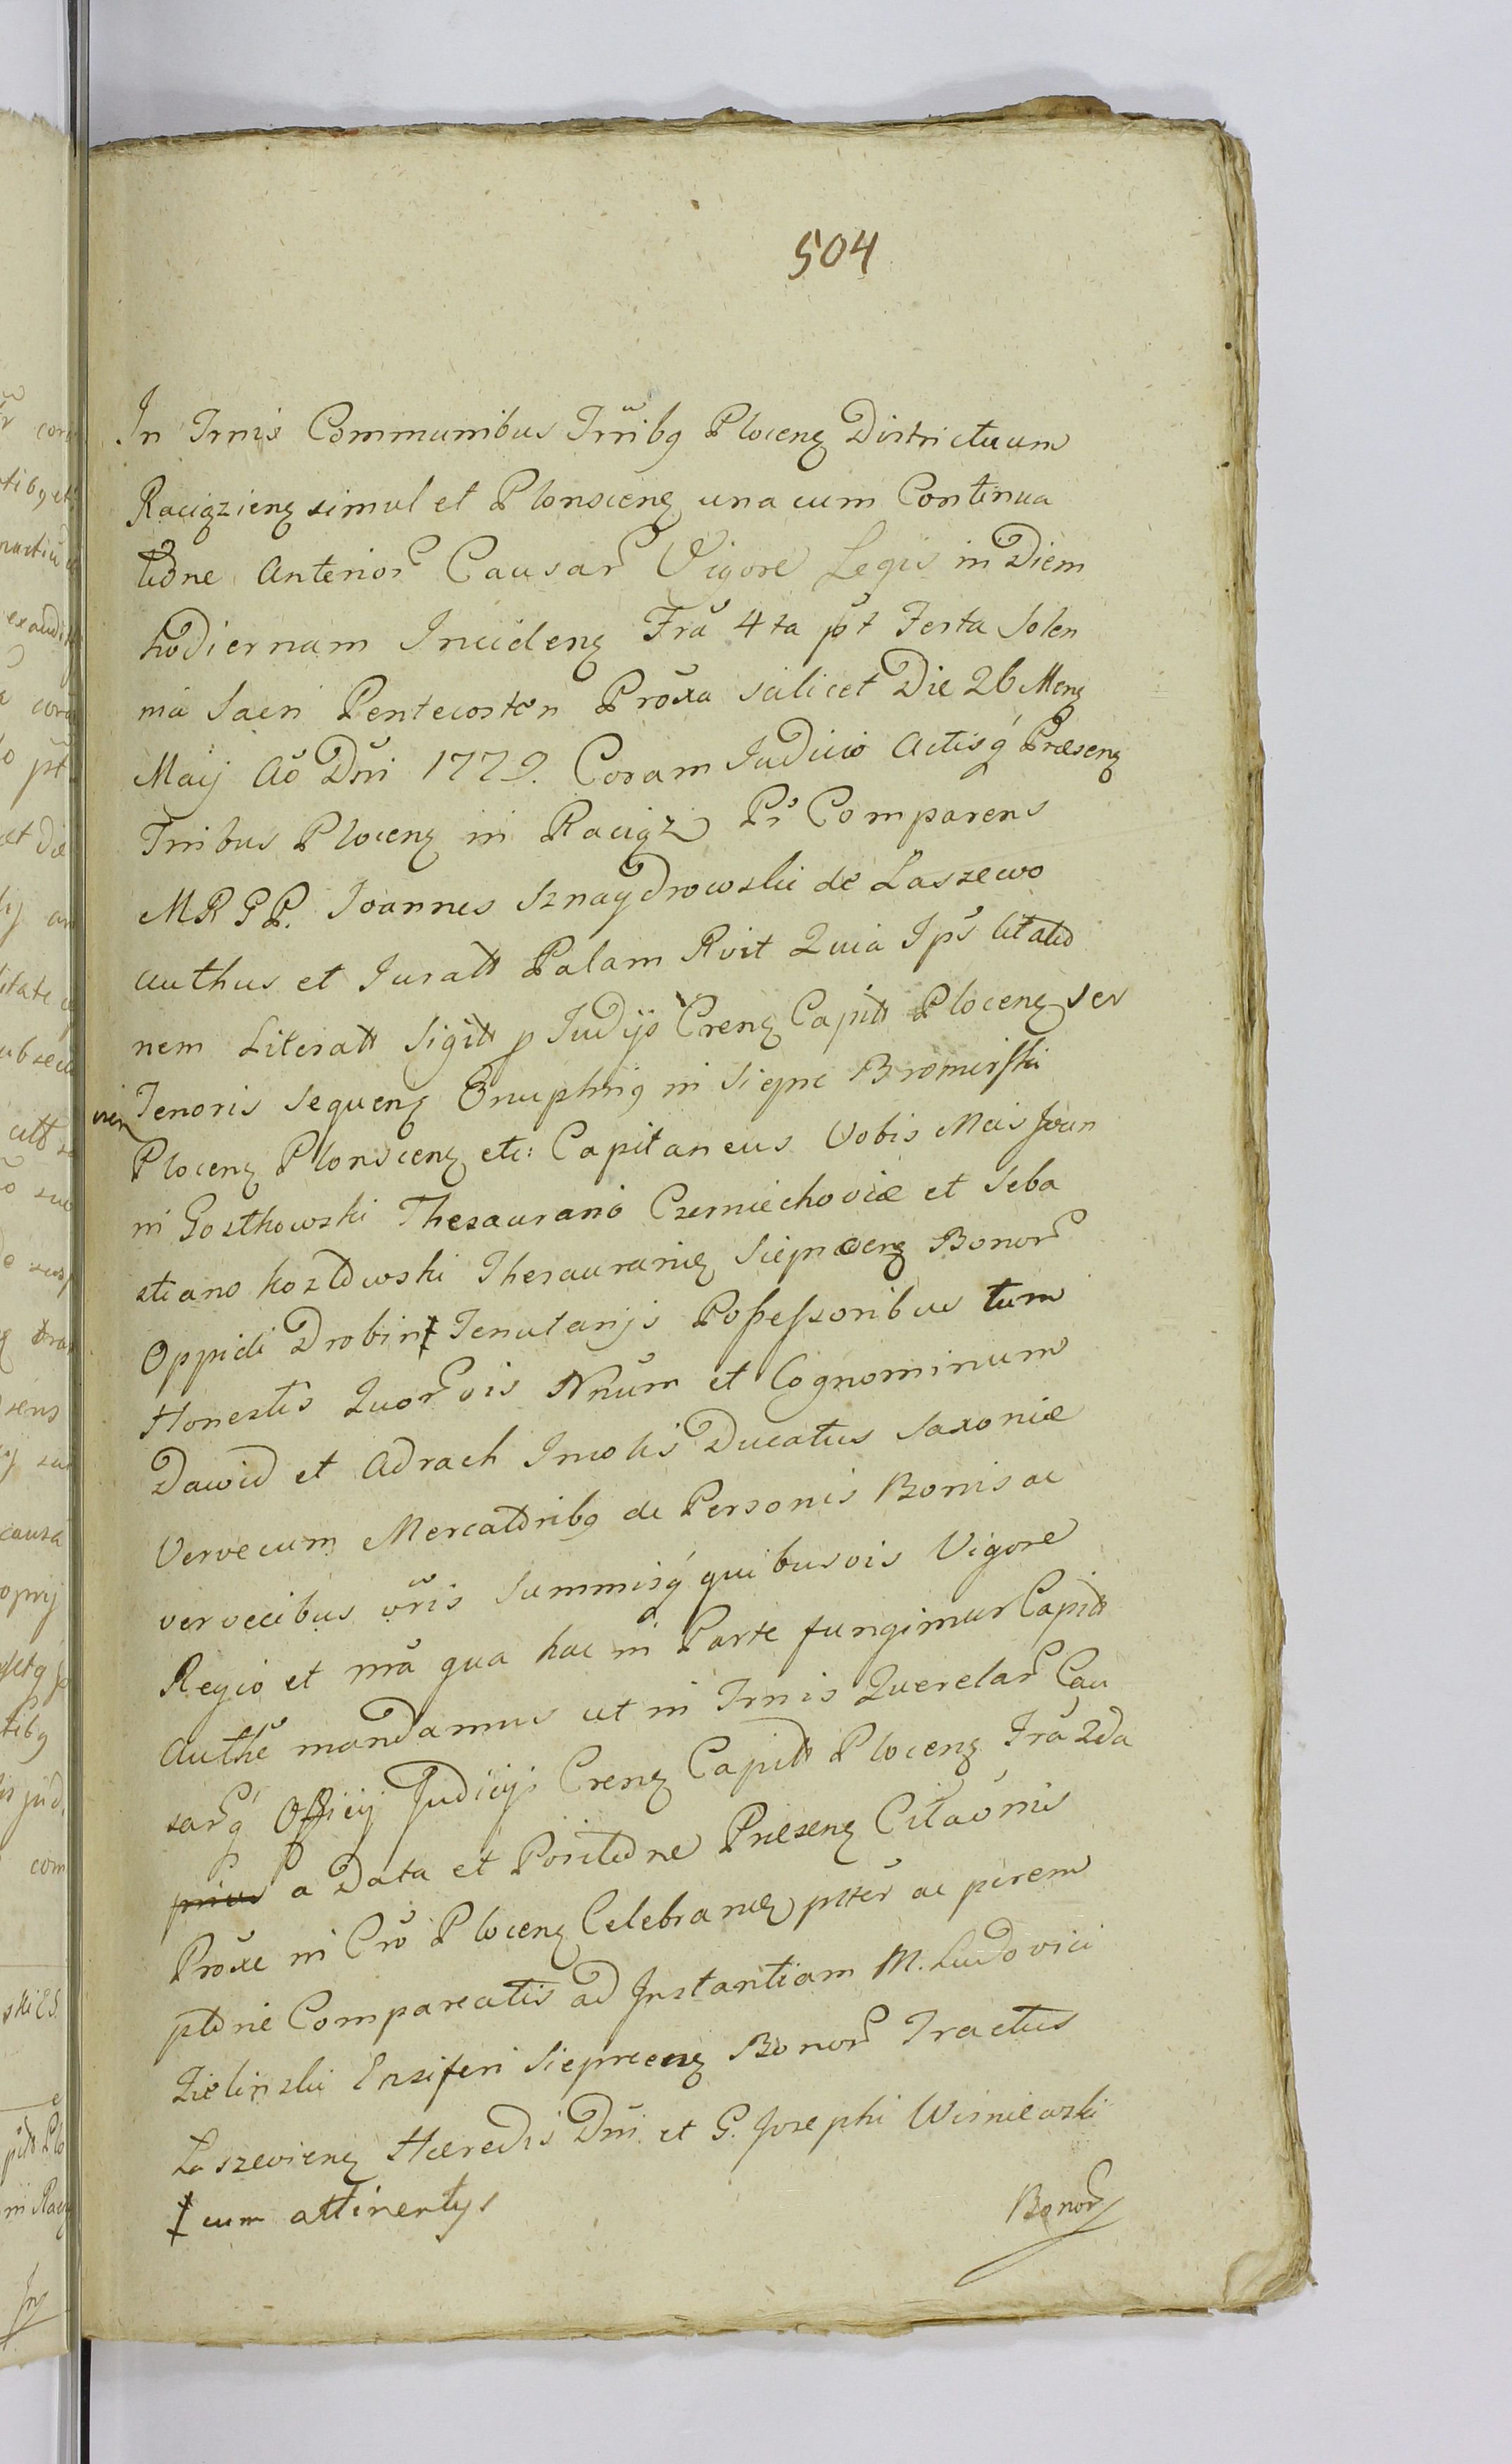 504
In Trnis Communibus Trribq Plocenq Districtuum
Raciązienq simul et Plonscenq una cum Continua
tione Anterior Causar Vigore Legis in Diem
hodiernam Incidenq Fra 4ta pt Festa Solen
nia Sacri Pentecosten Proxa scilicet Die 26 Menq
Maij Ao Dni 1779. Coram Judicio Actisq Præsenq
Trribus Plocenq in Raciąz Pr Comparens
MRGP. Joannes Sznaydrowski de Laszewo
Authus et Juratt Palam Rvit Quia Ips Citatio
nem Literatt Sigitt p Judijs Crenq Capitt Plocenq Ser
viem Tenoris Sequenq Onuphriq in Siepne Bromirski
Plocenq Plonscenq etc: Capitaneus Vobis Mcis Joan
ni Gostkowski Thesaurario Czerniechoviæ et Seba
stiano Kozłowski Thesaurariq Siepncenq Bonor
Oppidi Drobin ‡ Tenutarijs Possessoribus tum
Honestis Quorvis Nnum et Cognominum
Dawid et Adrach Incolis Ducatus Saxoniæ
Vervecum Mercatoribq de Personis Bonis ac
vervecibus vris Summisq quibusvis Vigore
Regio et ma qua hac in Parte fungimur Capitt
Authe mandamus ut in Trnis Querelar Cau
sarq Officij Judicijs Crenq Capitt Plocenq Fra 2da
prius a Data et Positione Præsenq Citaonis
Proxe in Cro Plocenq Celebranq ptter ac pirem
ptorie Compareatis ad Instantiam M. Ludovici
Zielinski Ensiferi Siepreenq Bonor Tractus
Laszevienq Hæredis Dni et G. Josephi Wisniewski
‡ cum attinentijs
Bonor